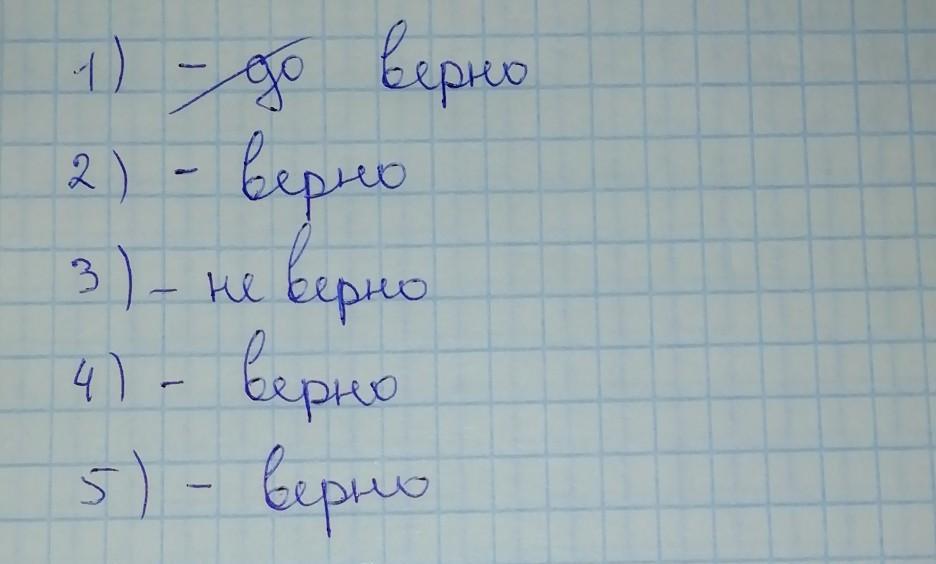 1) - до верно
2) - верно
3) - не верно
4) - верно
5) - верно